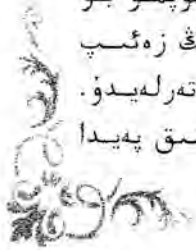 ڭ زەئىپ
تەرلەيدۇ.
ىق پەيدا